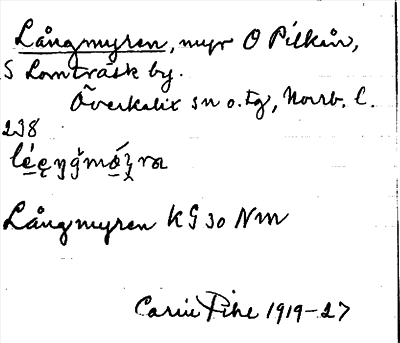 Långmyren, myr O Pilkån,
S Lomträsk by.
Överkalix sn o. tg, Norrb. l.
238
Långmyren KG 30 NM
Carin Pihl 1919-27